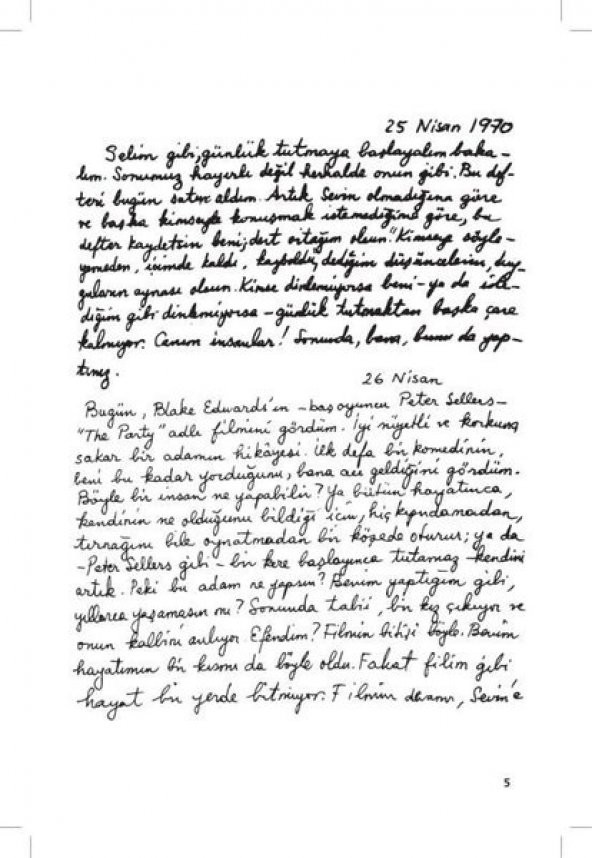 25 Nisan 1970
Selim gibi, günlük tutmaya başlayalım baka-
lım. Sonumuz hayırlı değil herhalde onun gibi. Bu def-
teri bugün satın aldım. Artık Sevin olmadığına göre
ve başka kimseyle konuşmak istemediğime göre, bu
defter kaydetsin beni; dert ortağım olsun. "Kimseye söyle-
yemeden, içimde kaldı, kayboldu," dediğim düşüncelerin, duy-
guların aynası olsun. Kimse dinlemiyorsa beni - ya da iste-
diğim gibi dinlemiyorsa - günlük tutmaktan başka çare
kalmıyor. Canım insanlar! Sonunda, bana, bunu da yap-
tınız.
26 Nisan
Bugün, Blake Edwards'ın - başoyuncu Peter Sellers -
"The Party" adlı filmini gördüm. İyi niyetli ve korkunç
sakar bir adamın hikâyesi. İlk defa bir komedinin,
beni bu kadar yorduğunu, bana acı geldiğini gördüm.
Böyle bir insan ne yapabilir? Ya bütün hayatınca,
kendinin ne olduğunu bildiği için, hiç kıpırdamadan,
tırnağını bile oynatmadan bir köşede oturur; ya da
- Peter Sellers gibi - bir kere başlayınca tutamaz kendini
artık. Peki bu adam ne yapsın? Benim yaptığım gibi,
yıllarca yaşamasın mı? Sonunda tabii, bir kız çıkıyor ve
onun kalbini anlıyor. Efendim? Filmin bitişi böyle. Benim
hayatımın bir kısmı da böyle oldu. Fakat filim gibi
hayat bir yerde bitmiyor. Filmin devamı, Sevin'e
5